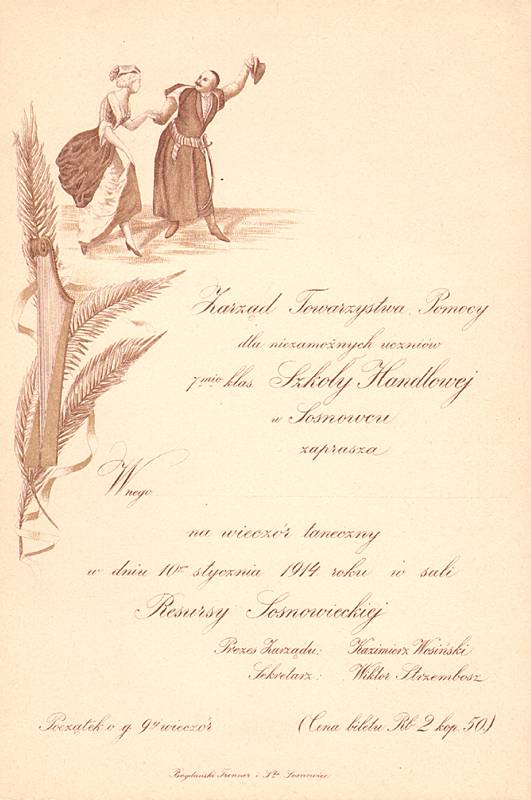 Zarząd Towarzystwa Pomocy
dla niezamożnych uczniów
7mio klas. Szkoły Handlowej
w Sosnowcu
zaprasza
Wnego
na wieczór taneczny
w dniu 10go stycznia 1914 roku w sali
Resursy Sosnowieckiej
Prezes Zarządu: Kazimierz Wosiński
Sekretarz: Wiktor Strzembosz
Początek o g. 9ej wieczór
(Cena biletu Rb 2 kop. 50.)
Bogdański Trenner i S-ka Sosnowiec